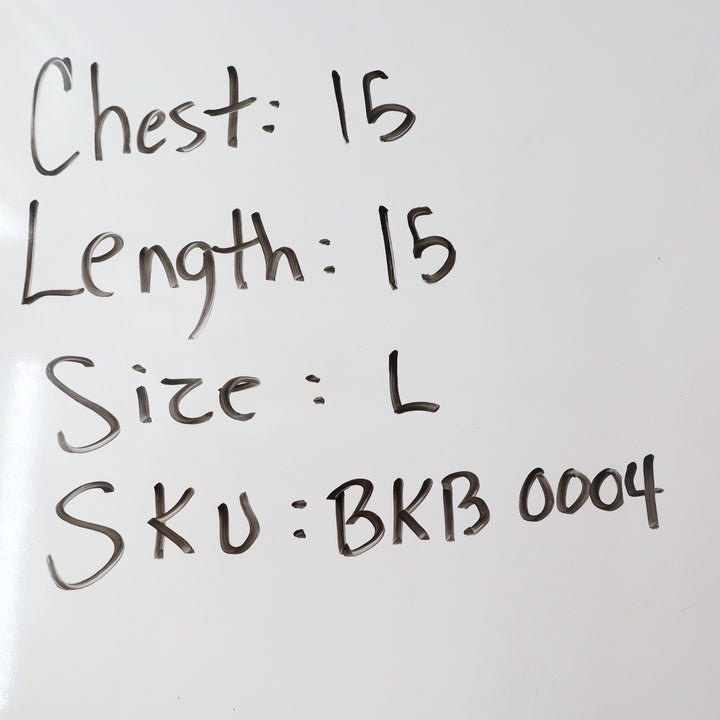 Chest: 15
Length: 15
Size: L
SKU: BKB 0004